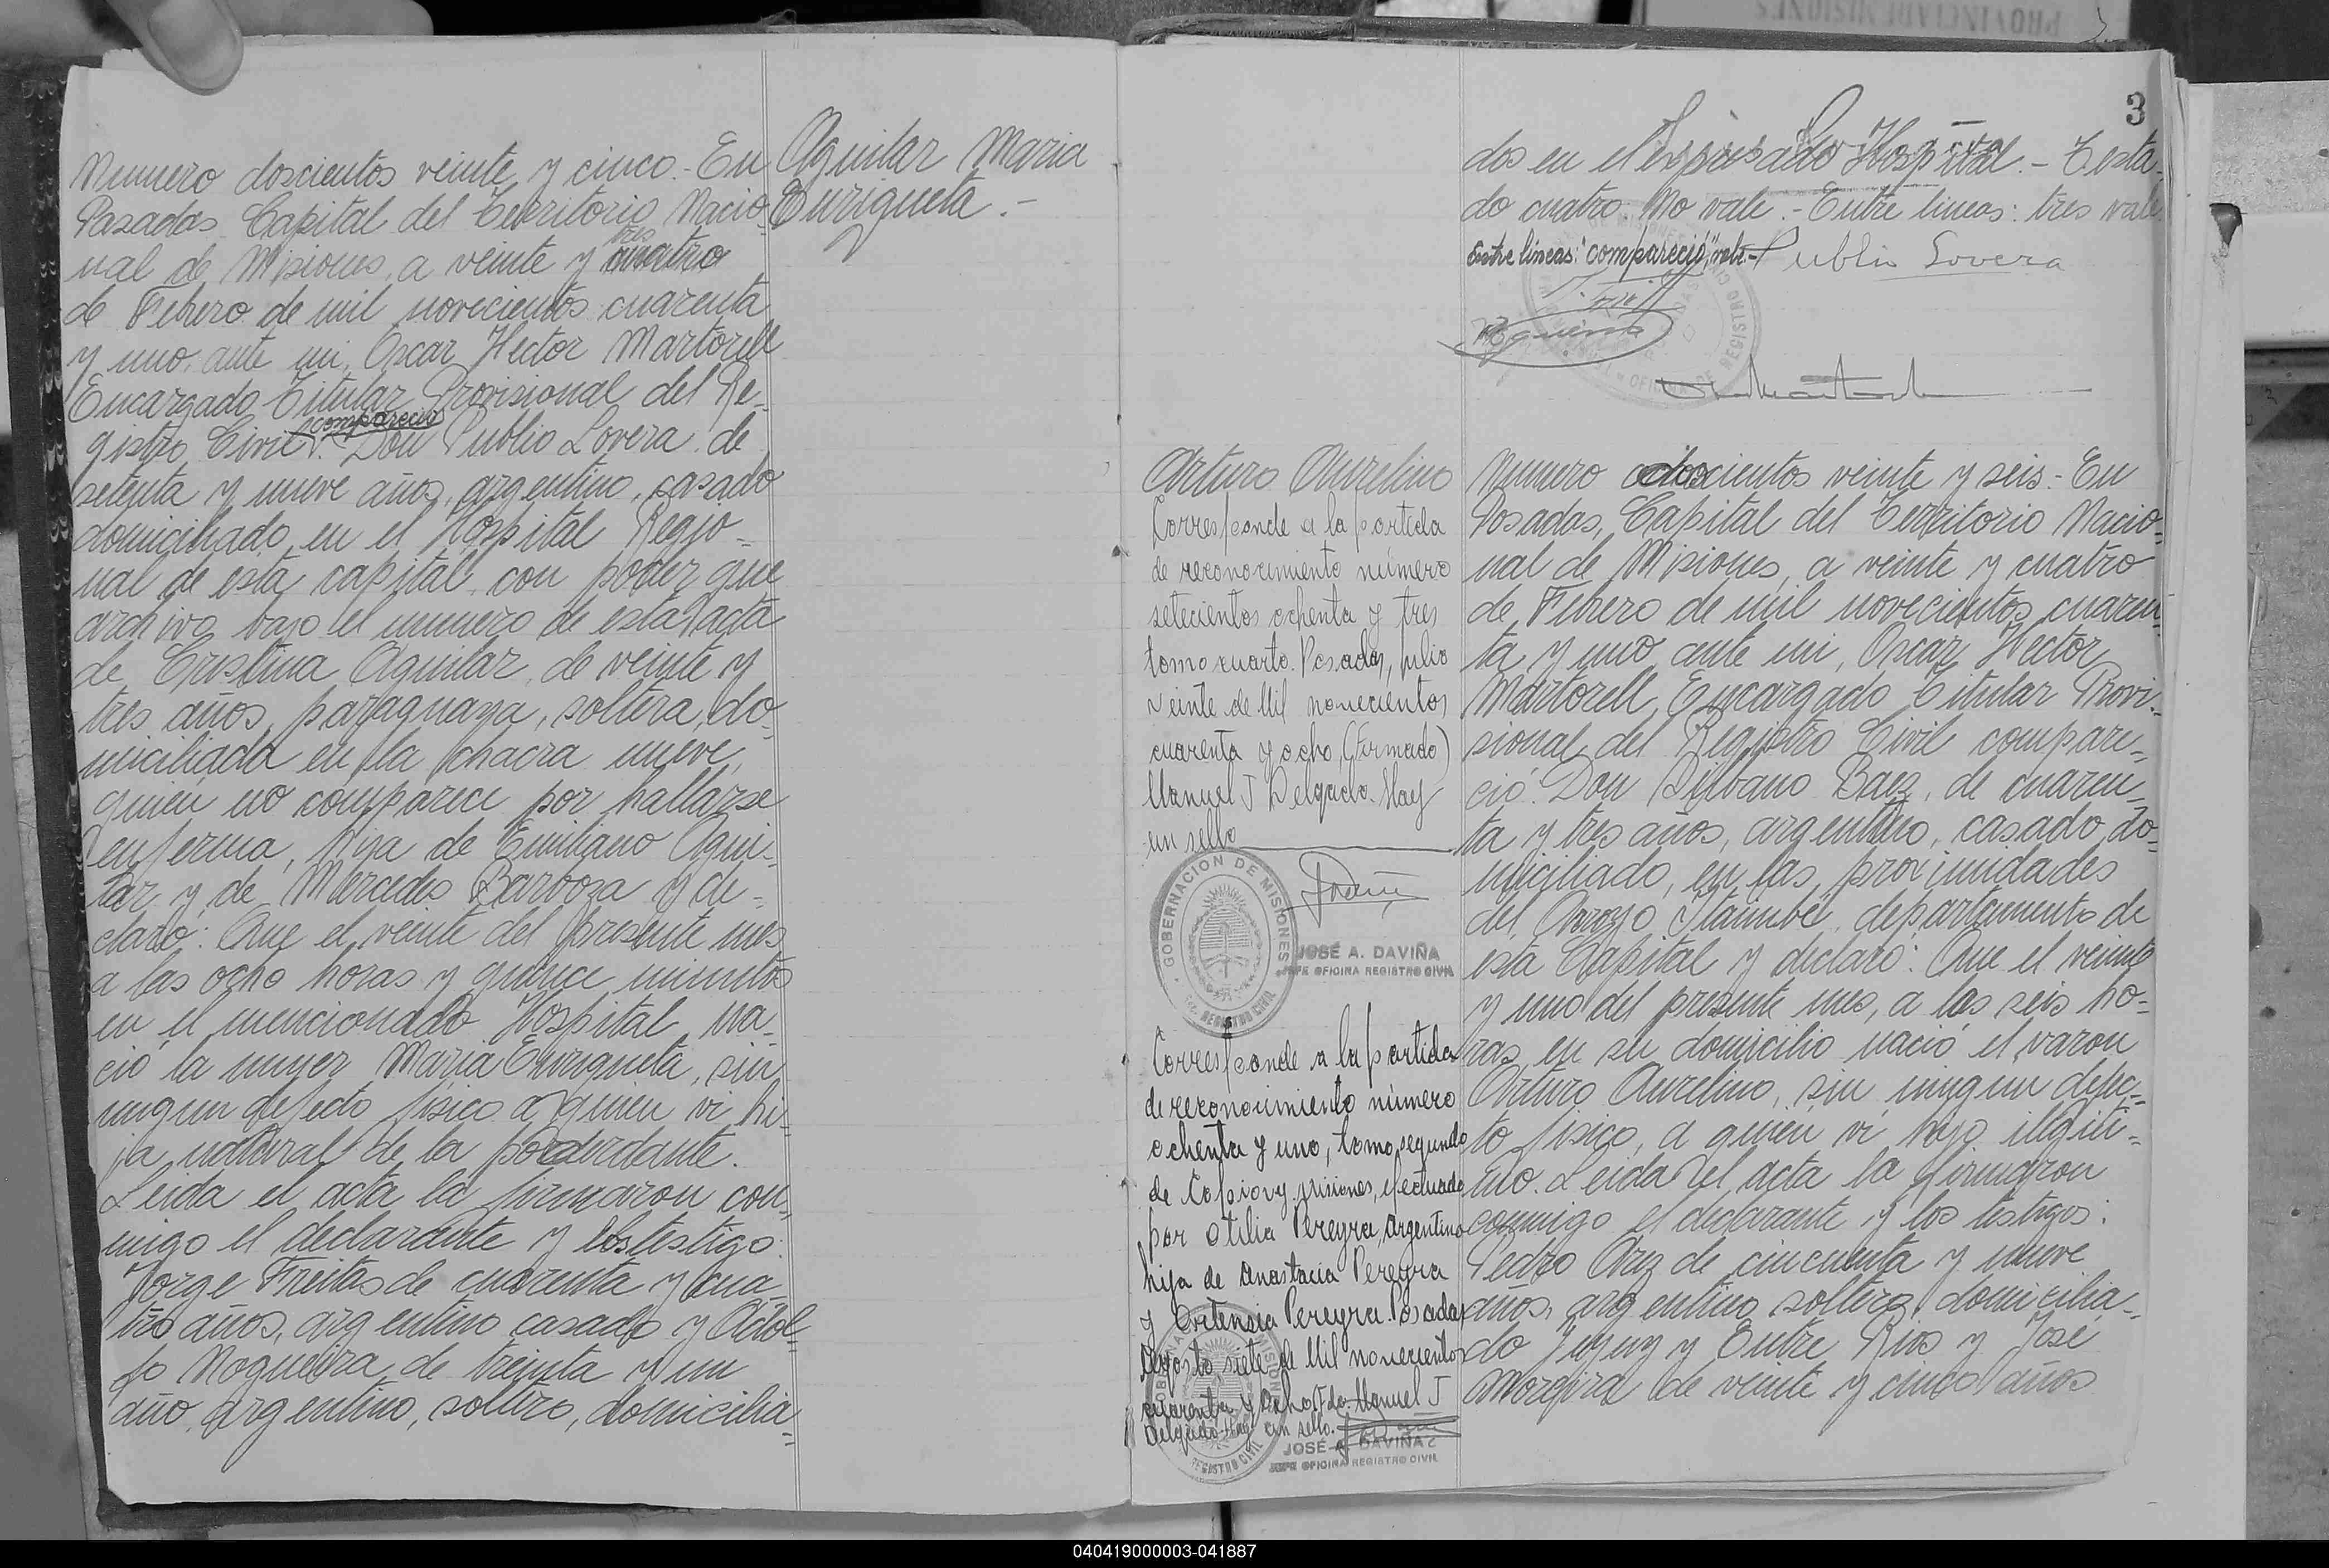 Numero doscientos veinte y cinco.- En
Posadas Capital del Territorio Nacio-
nal de Misiones, a veinte y cuatro
tres
de Febrero de mil novecientos cuarenta
y uno, ante mi, Oscar Hector Martorell
Encargado Titular Provisional del Re-
gistro Civil. Don Publio Lovera, de
compareció
setenta y nueve años, argentino, casado
domiciliado en el Hospital Regio-
nal de esta capital, con poder que
archivo bajo el numero de esta acta
de Cristina Aguilar, de veinte y
tres años, paraguaya, soltera, do-
miciliada en la chacra nueve,
quien no comparece por hallarse
enferma, hija de Emiliano Agui-
lar y de Mercedes Barboza y de-
claró: Que el veinte del presente mes
a las ocho horas y quince minutos
en el mencionado Hospital, na-
ció la mujer Maria Enriqueta, sin
ningun defecto fisico a quien vi hi-
ja natural de la poderdante.
Leida el acta la firmaron con-
migo el declarante y los testigo:
Jorge Freitas de cuarenta y cua-
tro años, argentino casado y Adol-
fo Nogueira de treinta y un
año, argentino, soltero, domicilia-
Aguilar Maria
Enriqueta.-
3
dos en el expresado Hospital.- Testa-
do cuatro: No vale.- Entre lineas: tres vale
Entre lineas: "compareció", vale.-
Publio Lovera
Arturo Aurelino
Corresponde a la partida
de reconocimiento número
setecientos ochenta y tres
tomo cuarto. Posadas, julio
veinte de Mil novecientos
cuarenta y ocho, (Firmado)
Manuel J Delgado. Hay
un sello
GOBERNACION DE MISIONES
REGISTRO CIVIL
JOSÉ A. DAVIÑA
JEFE OFICINA REGISTRO CIVIL
Corresponde a la partida
de reconocimiento número
ochenta y uno, tomo segundo
de Capiovy Misiones, efectuado
por Otilia Pereyra, Argentina
hija de Anastacia Pereyra
y Ortensia Pereyra. Posadas
Agosto siete de Mil novecientos
cuarenta y ocho. Fdo. Manuel J
Delgado. Hay un sello.
JOSÉ A. DAVIÑA
JEFE OFICINA REGISTRO CIVIL
REGISTRO CIVIL
Numero doscientos veinte y seis.- En
Posadas, Capital del Territorio Nacio-
nal de Misiones, a veinte y cuatro
de Febrero de mil novecientos cuaren-
ta y uno, ante mi, Oscar Hector
Martorell, Encargado Titular Provi-
sional del Registro Civil compare-
ció: Don Silbano Baez, de cuaren-
ta y tres años, argentino, casado, do-
miciliado, en las proximidades
del Arroyo Itaimbé, departamento de
esta Capital y declaró: Que el veinte
y uno del presente mes, a las seis ho-
ras, en su domicilio nació el varon
Arturo Aurelino, sin ningun defec-
to fisico, a quien vi hijo ilegiti-
mo. Leida el acta la firmaron
conmigo el declarante y los testigos:
Pedro Cruz de cincuenta y nueve
años, argentino soltero, domicilia-
do Jujuy y Entre Rios y José
de veinte y cinco años
040419000003-041887